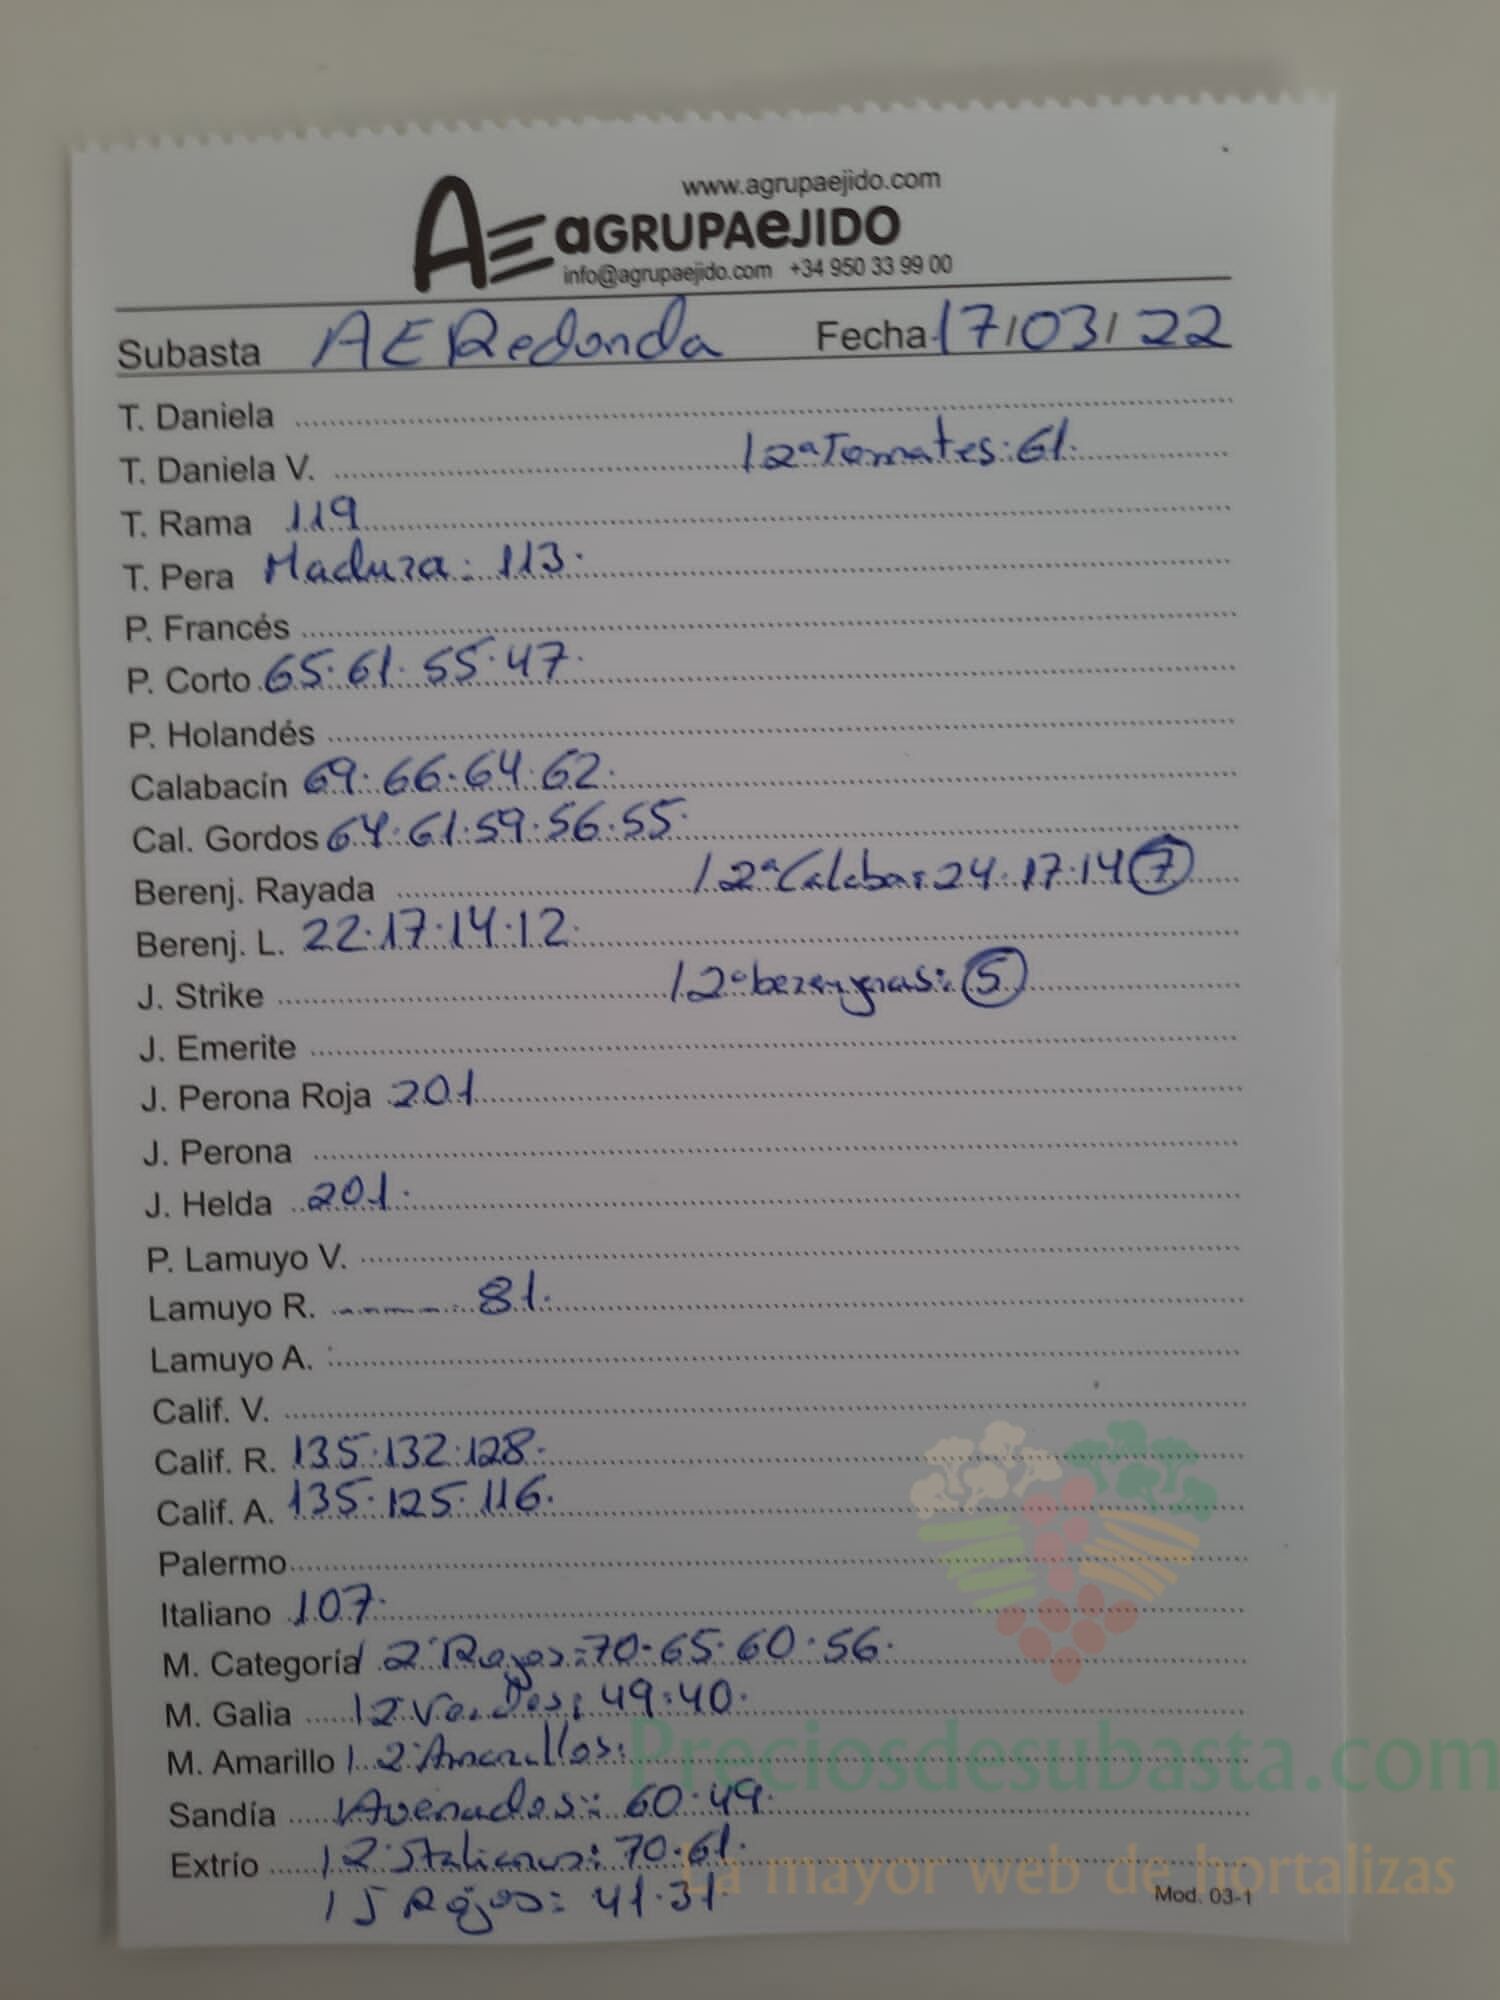 www.agrupaejido.com
AE aGRUPAeJIDO
info@agrupaejido.com +34 950 33 99 00
Subasta AE Redonda Fecha 17/03/22
T. Daniela
T. Daniela V. / 2ª Tomates: 61.
T. Rama 119
T. Pera Madura: 113.
P. Francés
P. Corto 65. 61. 55. 47.
P. Holandés
Calabacín 69. 66. 64. 62.
Cal. Gordos 64. 61. 59. 56. 55.
Berenj. Rayada / 2ª Calaba: 24. 17. 14 7
Berenj. L. 22. 17. 14. 12.
J. Strike / 2ª berenjenas: 5
J. Emerite
J. Perona Roja 201
J. Perona
J. Helda 201.
P. Lamuyo V.
Lamuyo R. 81.
Lamuyo A.
Calif. V.
Calif. R. 135. 132. 128.
Calif. A. 135. 125. 116.
Palermo
Italiano 107.
M. Categoría 2ª Rojos: 70. 65. 60. 56.
M. Galia / 2ª Verdes: 49. 40.
M. Amarillo / 2ª Amarillos:
Preciosdesubasta.com
Sandía / Avenados: 60. 49.
Extrío / 2ª Italianos: 70. 61.
La mayor web de hortalizas
/ J Rojos: 41. 31.
Mod. 03-1